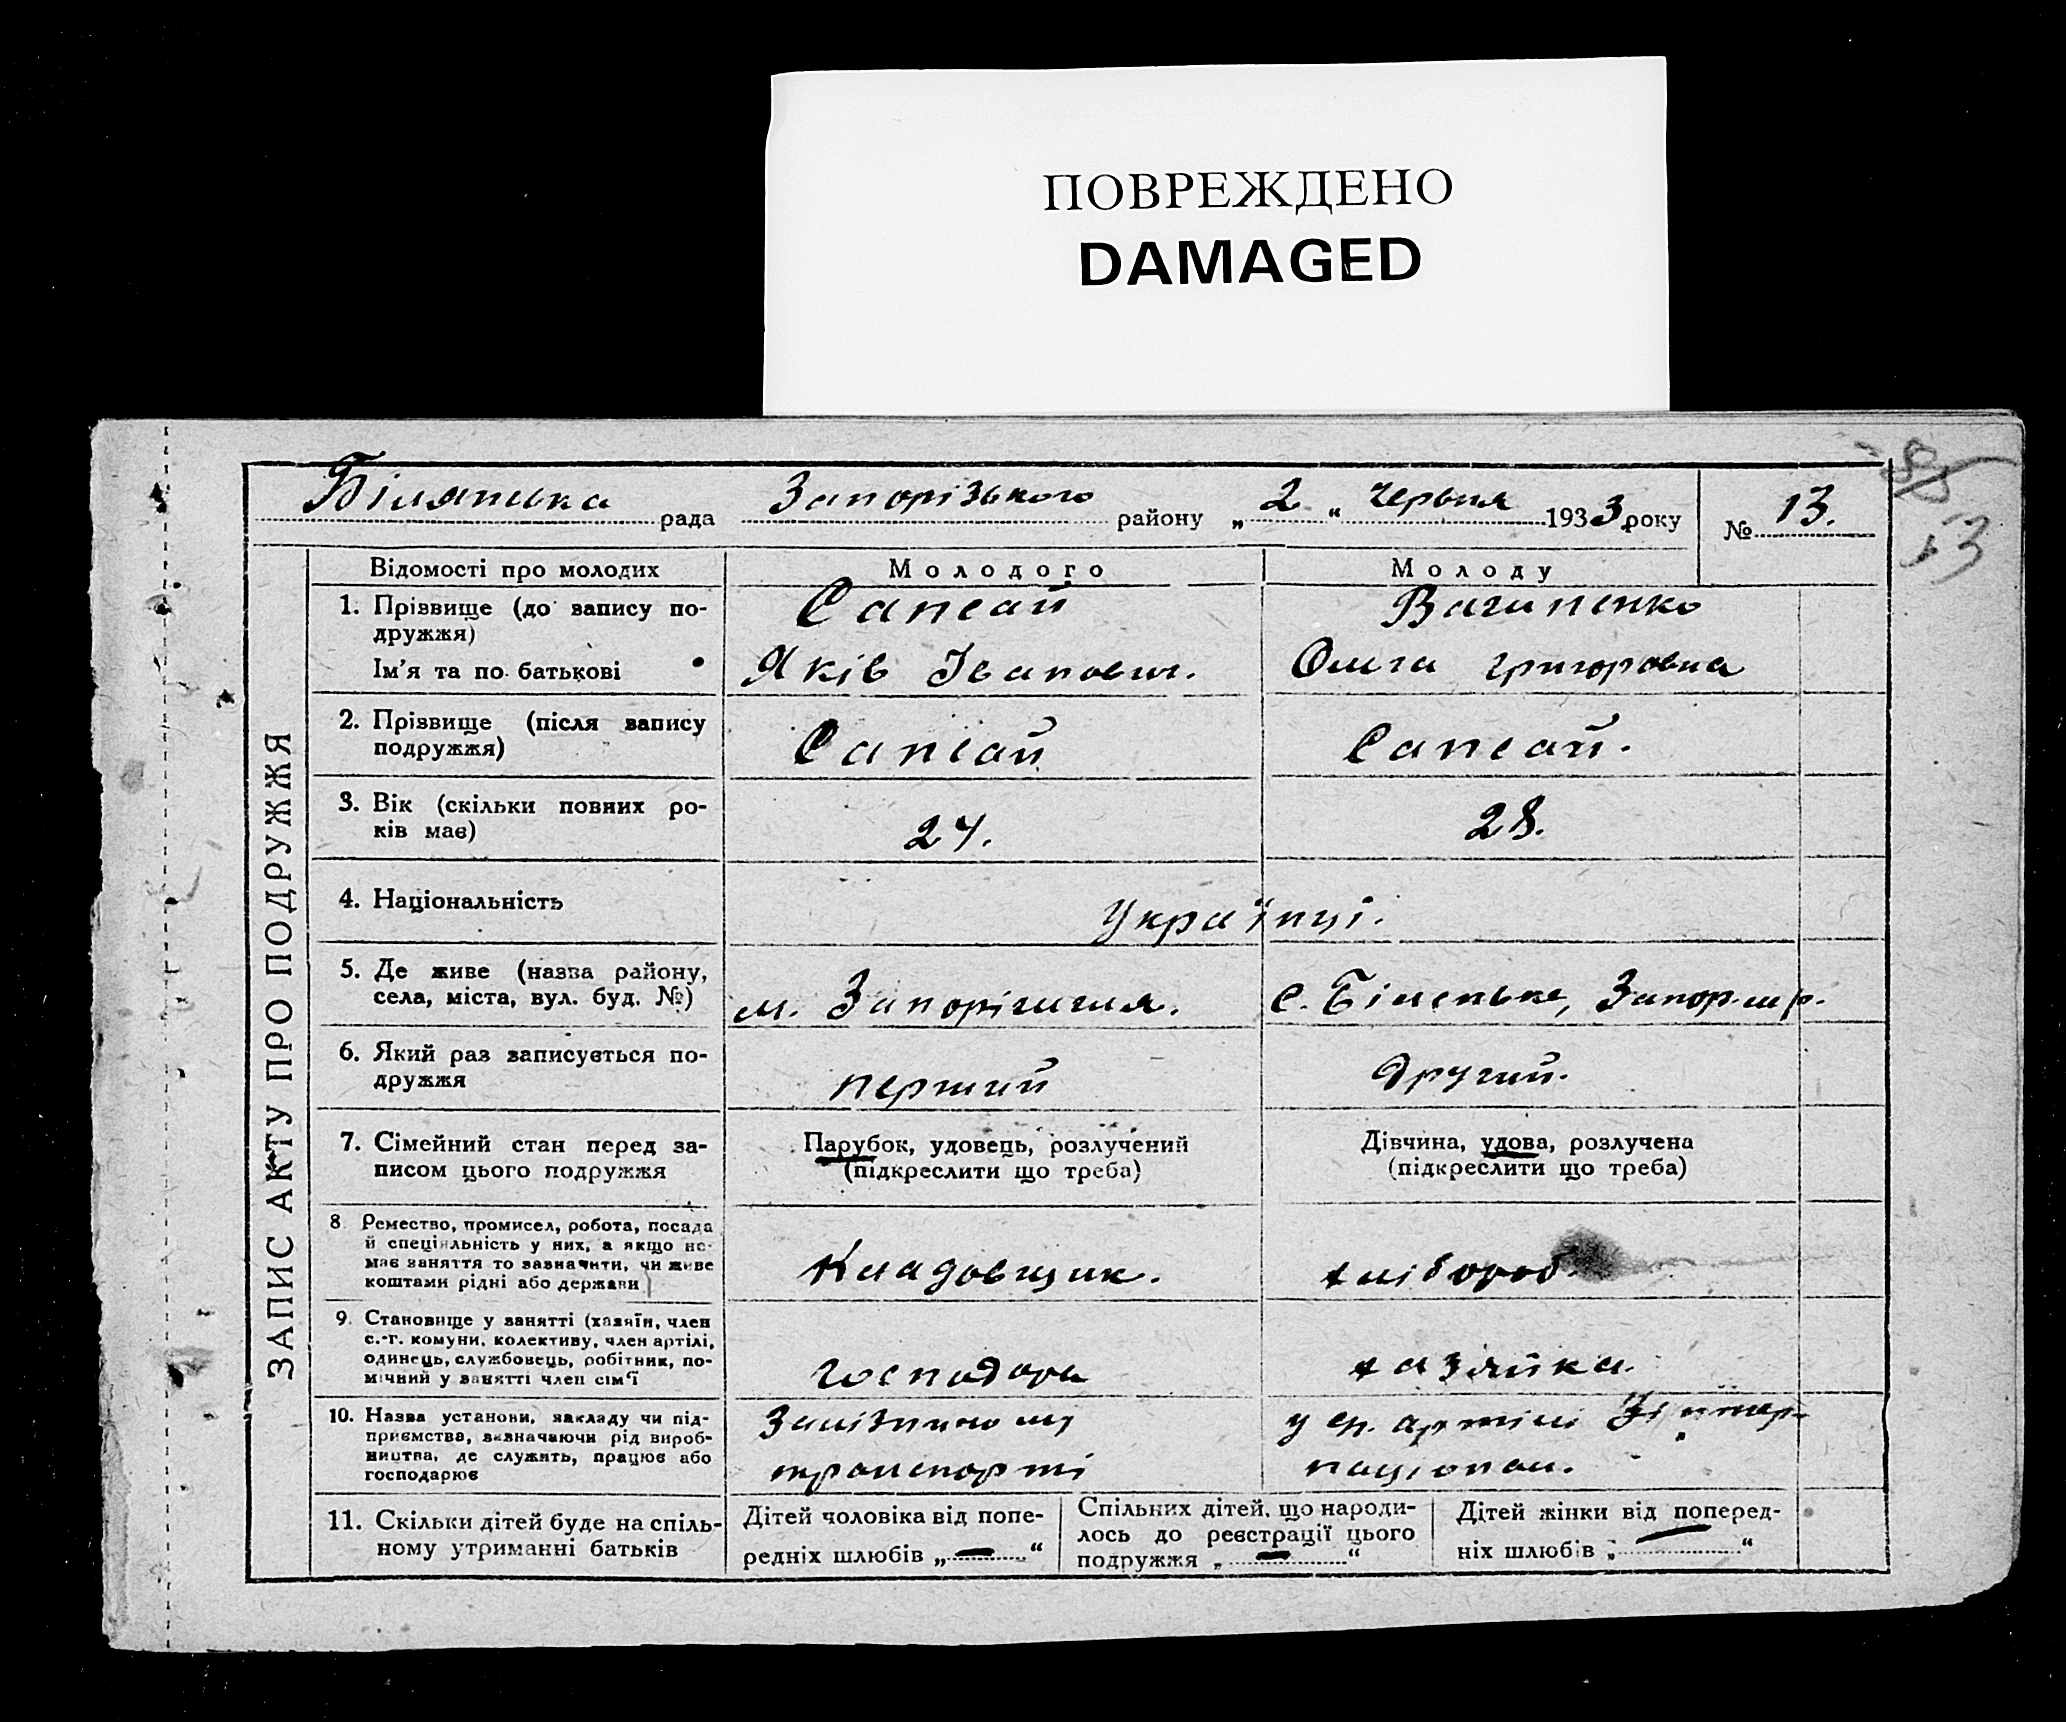 ПОВРЕЖДЕНО
DAMAGED
85
13
Білянська рада Запорізького району „ 2 “ червня 1933 року № 13.
ЗАПИС АКТУ ПРО ПОДРУЖЖЯ
Відомості про молодих Молодого Молоду
1. Прізвище (до запису по-
дружжя) Сапсай
Ім'я та по батькові Яків Іванович. Ольга Григоровна
2. Прізвище (після запису
подружжя) Сапсай Сапсай.
3. Вік (скільки повних ро-
ків має) 24. 28.
4. Національність Українці.
5. Де живе (назва району,
села, міста, вул. буд. №) м. Запоріжжя. с. Біленьке,
6. Який раз записується по-
дружжя перший другий.
7. Сімейний стан перед за-
писом цього подружжя
Парубок, удовець, розлучений
(підкреслити що треба)
Дівчина, удова, розлучена
(підкреслити що треба)
8. Ремество, промисел, робота, посада
й спеціяльність у них, а якщо не-
має заняття то зазначити, чи живе
коштами рідні або держави Кладовщик. хлібороб.
9. Становище у занятті (хазяїн, член
с.-г. комуни, колективу, член артілі,
одинець, службовець, робітник, по-
мічний у занятті член сім'ї господарь хазяйка.
10. Назва установи, закладу чи під-
приємства, зазначаючи рід вироб-
ництва, де служить, працює або
господарює
Залізничному
транспорті
у ср. артілі Інтер-
національ.
11. Скільки дітей буде на спіль-
ному утриманні батьків
Дітей чоловіка від попе-
редніх шлюбів „ — “
Спільних дітей, що народи-
лось до реєстрації цього
подружжя „ — “
Дітей жінки від поперед-
ніх шлюбів „ — “